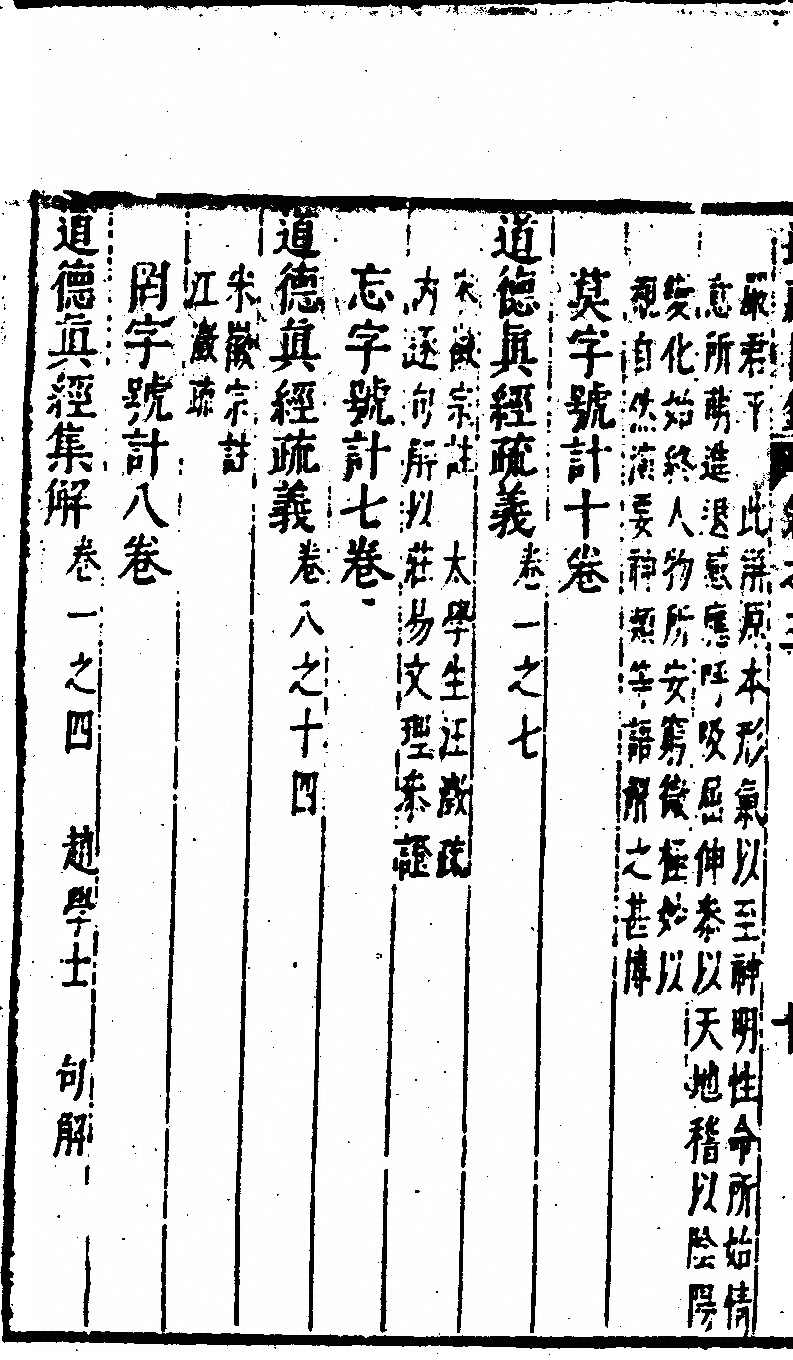 嚴君平 此解原本形氣以至神明性命所始情
意所萌進退感應呼吸屈伸參以天地稽以陰陽
變化始終人物所安窮微極妙以
觀自然演要神類等語解之甚博
莫字號計十卷
道德眞經疏義 卷一之七
宋徽宗註 太學生江澂疏
內逐句解以莊易文理參證
忘字號計七卷
道德眞經疏義 卷八之十四
宋徽宗註
江澂疏
罔字號計八卷
道德眞經集解 卷一之四 趙學士 句解